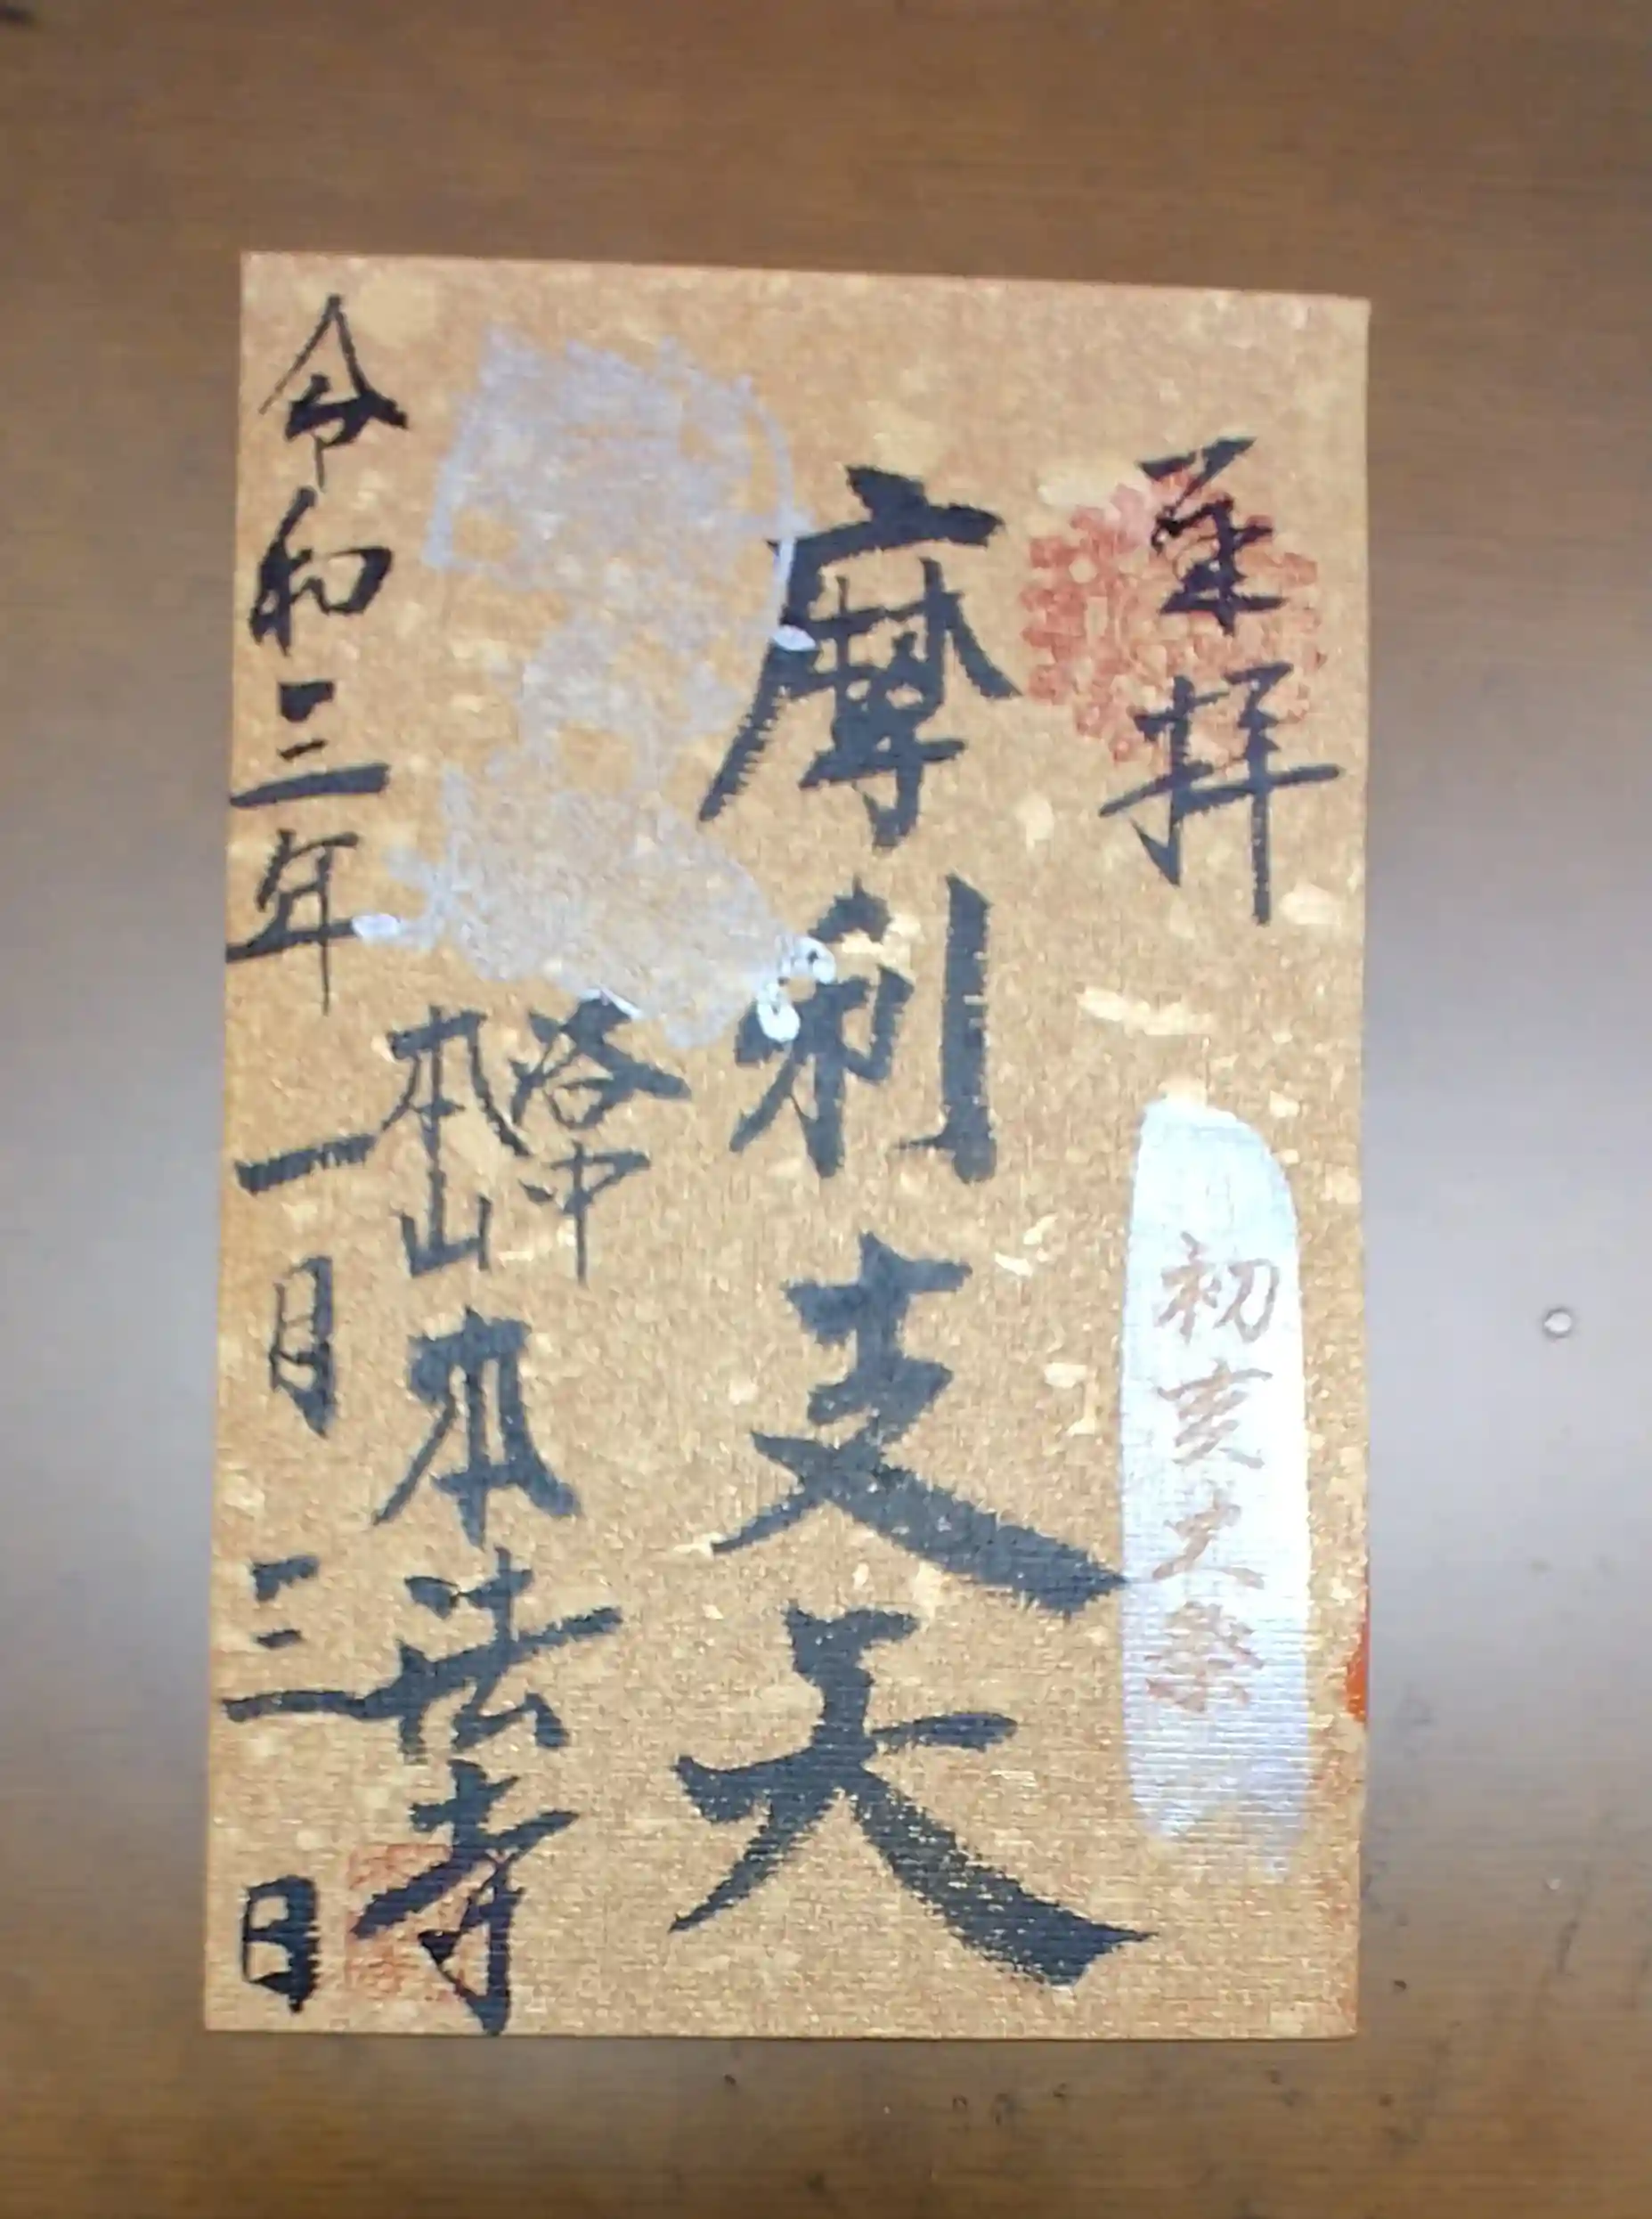 奉拝
初亥大祭
摩利支天
洛中
本山
本法寺
令和三年一月三日